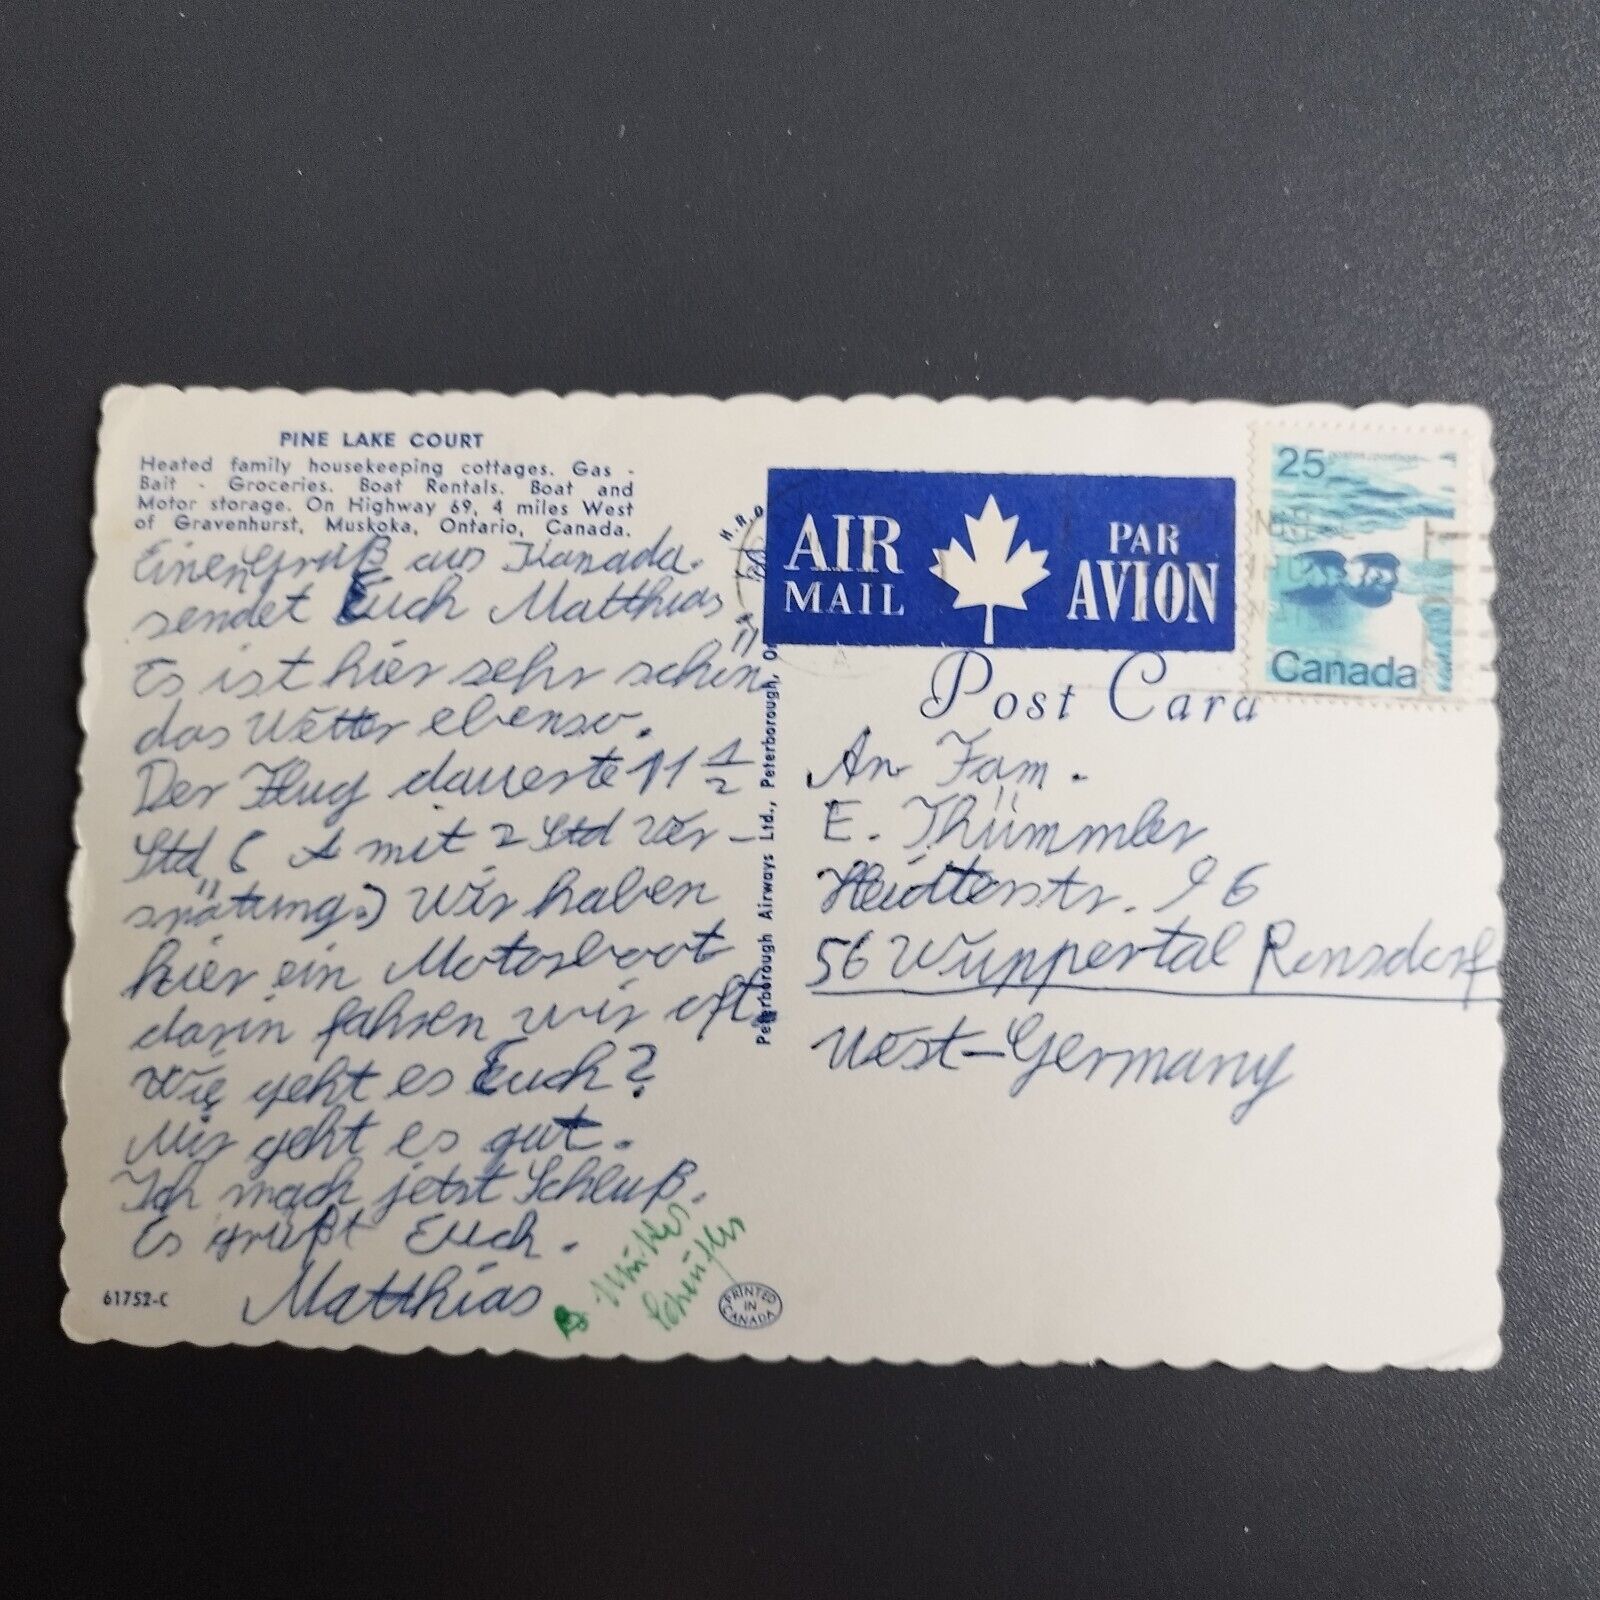 PINE LAKE COURT
Heated family housekeeping cottages. Gas -
Bait - Groceries. Boat Rentals. Boat and
Motor storage. On Highway 69, 4 miles West
of Gravenhurst, Muskoka, Ontario, Canada.
Einen Gruß aus Kanada.
sendet Euch Matthias
Es ist hier sehr schön
das Wetter ebenso.
Der Flug dauerte 11 1/2
Std ( mit 2 Std Ver-
spätung.) Wir haben
hier ein Motorboot
darin fahren wir oft.
Wie geht es Euch?
Mir geht es gut.
Ich mach jetzt Schluß.
Es grüßt Euch.
Matthias
61752-C
PRINTED IN CANADA
Peterborough Airways Ltd., Peterborough,
AIR MAIL
PAR AVION
25
postes postage
Canada
Post Card
An Fam.
E. Thümmler
Heidterstr. 96
56 Wuppertal Ronsdorf
West-Germany